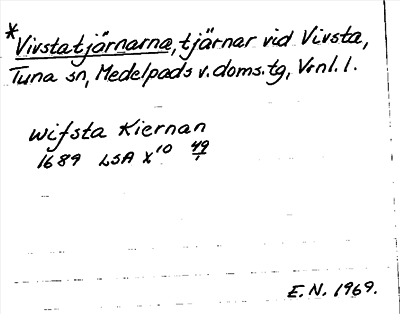 *Vivstatjärnarna, tjärnar vid Vivsta,
Tuna sn, Medelpads v. doms.tg, Vrnl. l.
Wifsta Kiernan
1689 LSA X¹⁰ 49/1
E.N. 1969.